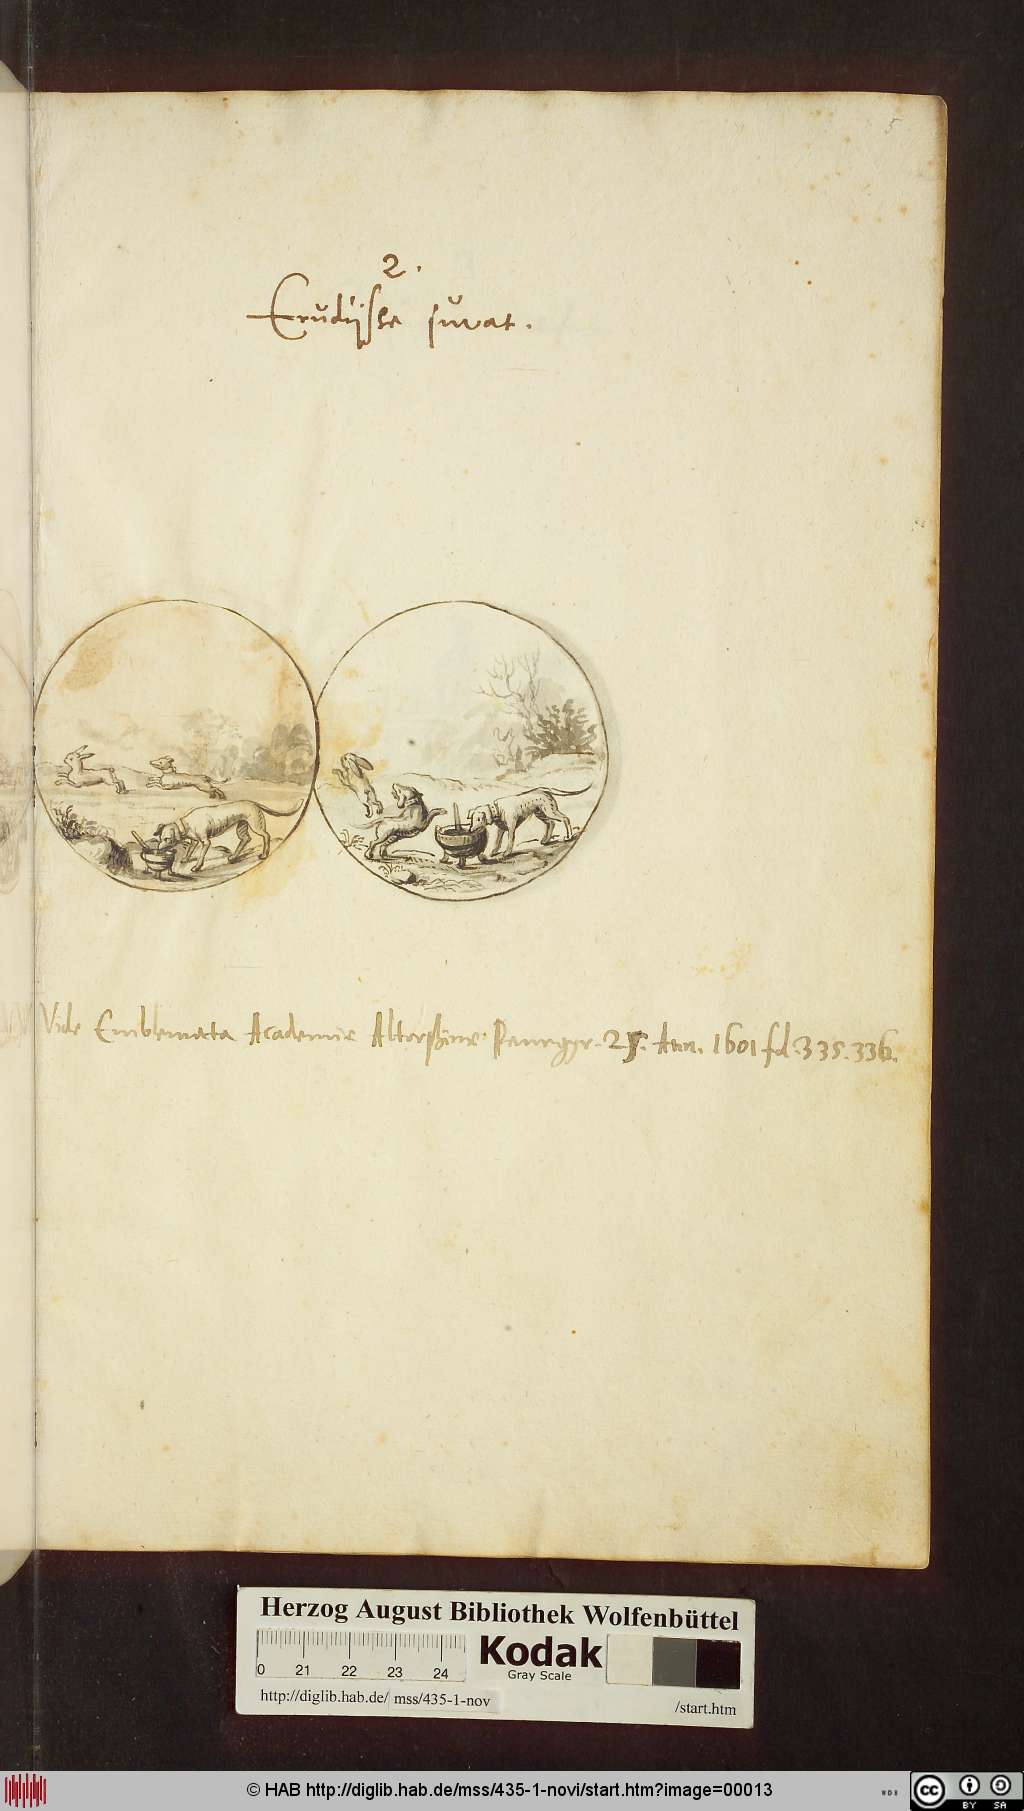 5
2.
Erudijsse juvat.
Vide Emblemata Academiæ Altorfinæ Panegyr. 25. Ann. 1601 fol. 335. 336.
Herzog August Bibliothek Wolfenbüttel
0 21 22 23 24
Kodak
Gray Scale
http://diglib.hab.de/ mss/435-1-nov
/start.htm
© HAB http://diglib.hab.de/mss/435-1-novi/start.htm?image=00013
WDB
cc BY SA